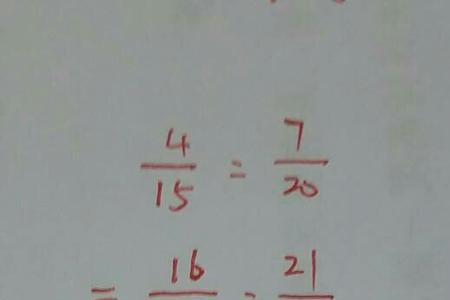 4/15 : 7/20
= 16/ : 21/